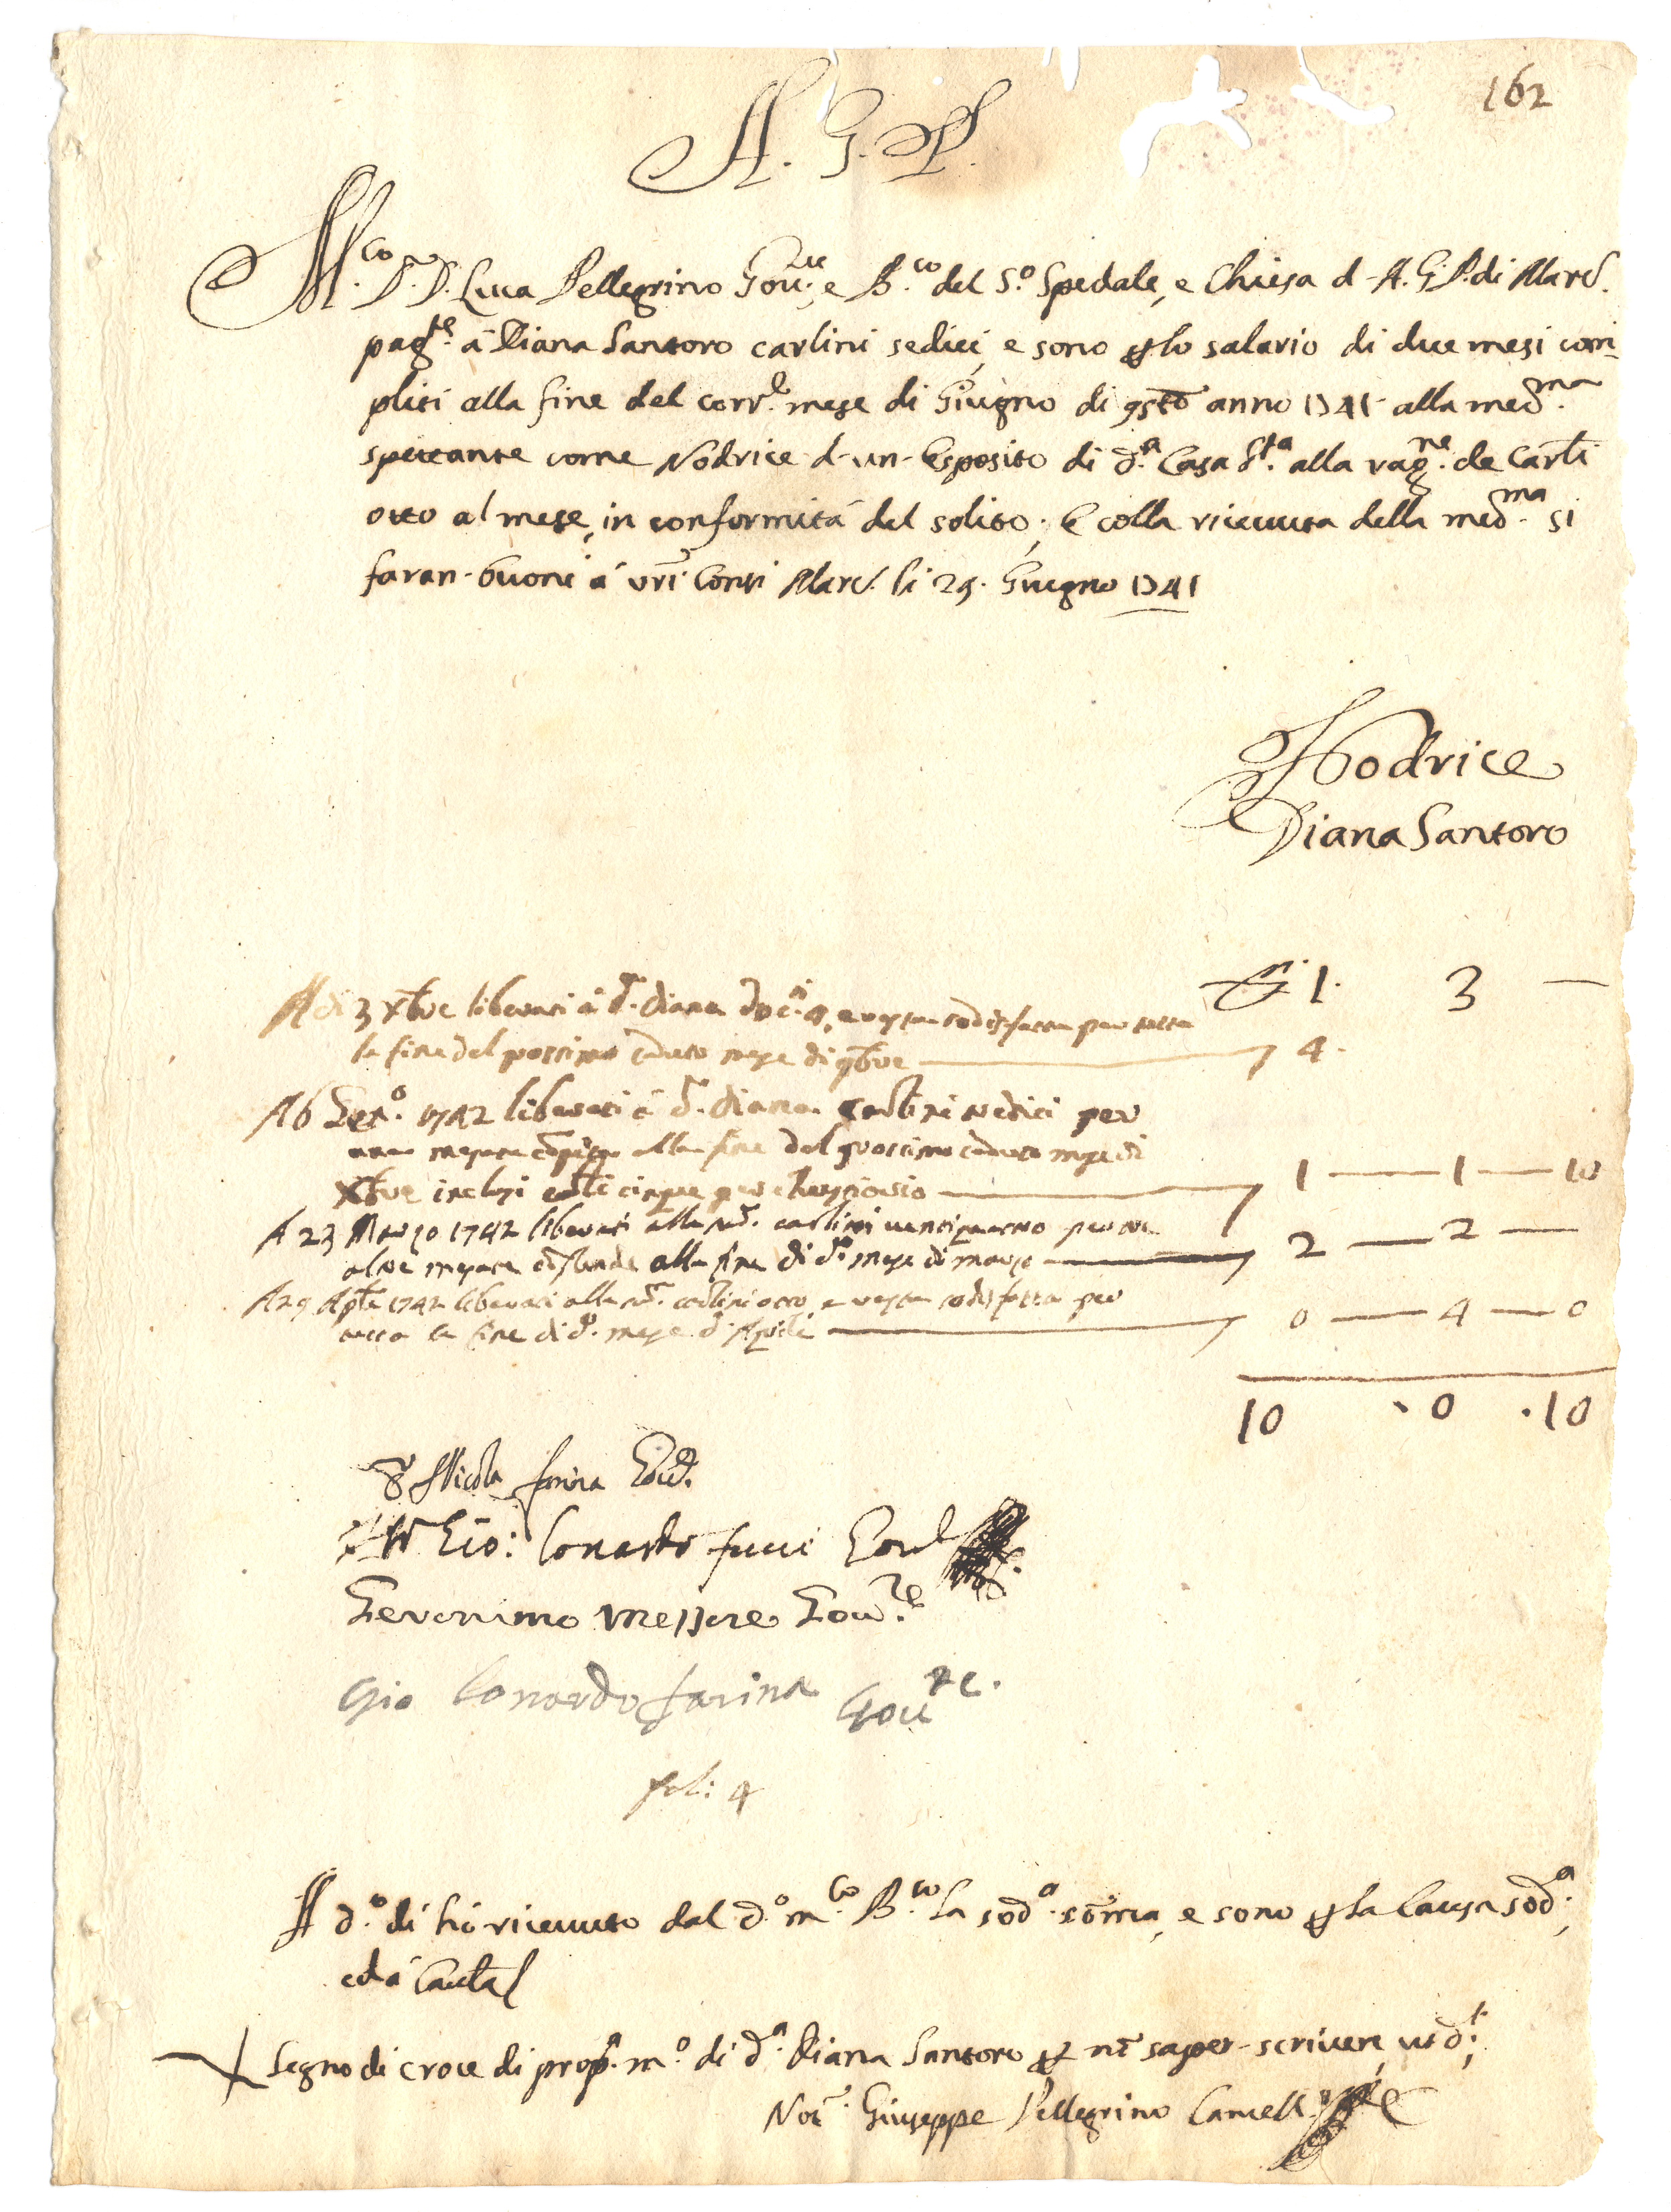 162
A. G. P.
M.co D. D. Luca Pellegrino Gou.re, e B.co del S.o Spedale, e Chiesa d-A. G. P. di Mard.
pag.te á Diana Santoro carlini sedici, e sono p lo salario di due mesi com-
pliti alla fine del corr.e mese di Giugno di qsto anno 1741 alla med.ma
spettante come Nodrice d-un-Esposito di d.a Casa S.ta alla rag.ne de Carli
otto al mese, in conformitá del solito; E colla riceuuta della med.ma si
faran-buoni á vri Conti Mard. li 29. Giugno 1741
Nodrice
Diana Santoro
1. 3 —
A di 3 Xbre liberati á d. Diana doc.i 4, e resta sodisfatta per tutta
la fine del prossimo caduto mese di 9bre — 4.
A 6 Gen.o 1742 liberati á d. Diana carlini sedici per
alla fine del prossimo caduto mese di
Xbre inclusi carli cinque per — 1 — 1 — 10
A 23 Marzo 1742 liberati alla sud. carlini uentiquattro per tre
altre mesate alla fine di d.o mese di Marzo — 2 — 2 —
A 29 Aple 1742 liberati alla sud. carlini otto, e resta sodisfatta per
tutta la fine di d.o mese d'Aprile — 0 — 4 — 0
10 . 0 . 10
Nicola farina Gou.e
Gio: Lonardo fucci Gou.e
Geronimo Messere Gou.re
Gio Lonardo farina Gou.re
fol: 4
A d.o di hò riceuuto dal d.o m.co B.co la sod.a somma, e sono p la Causa sod.a;
ed á Cautela
+ Segno di croce di prop.a m.o di d.a Diana Santoro p nō saper-scriuere, ut d.t;
Not. Giuseppe Pellegrino Cancell.re